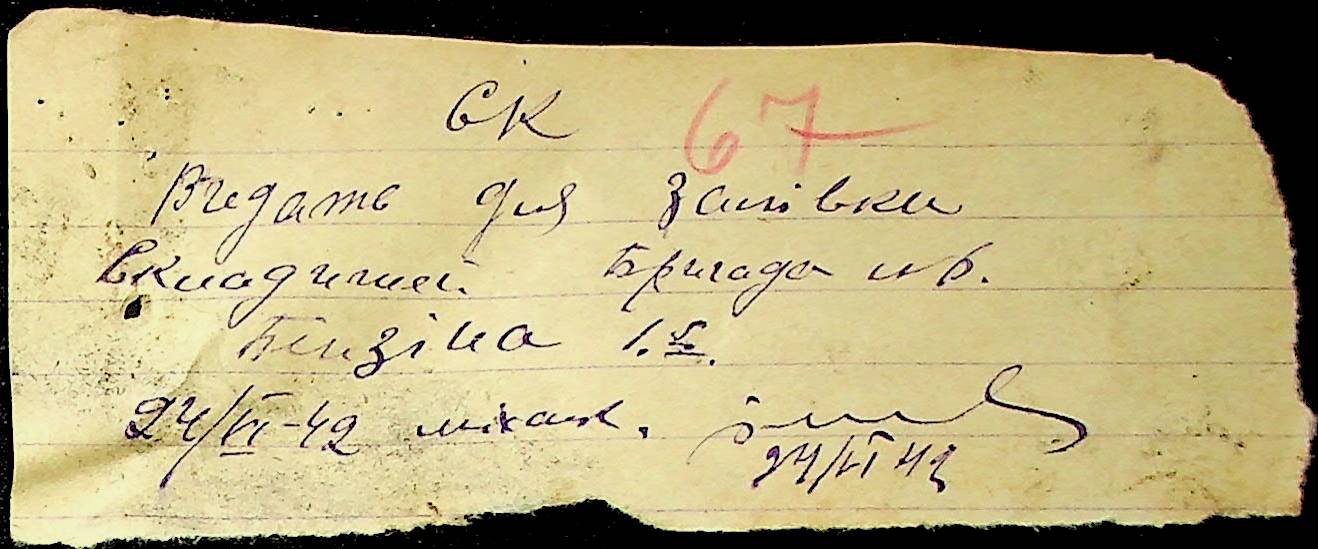 СК 67
Видать для заливки
вкладишей. Бригада
Бензіна 1.
24/VI-42 механ.
24/VI 42